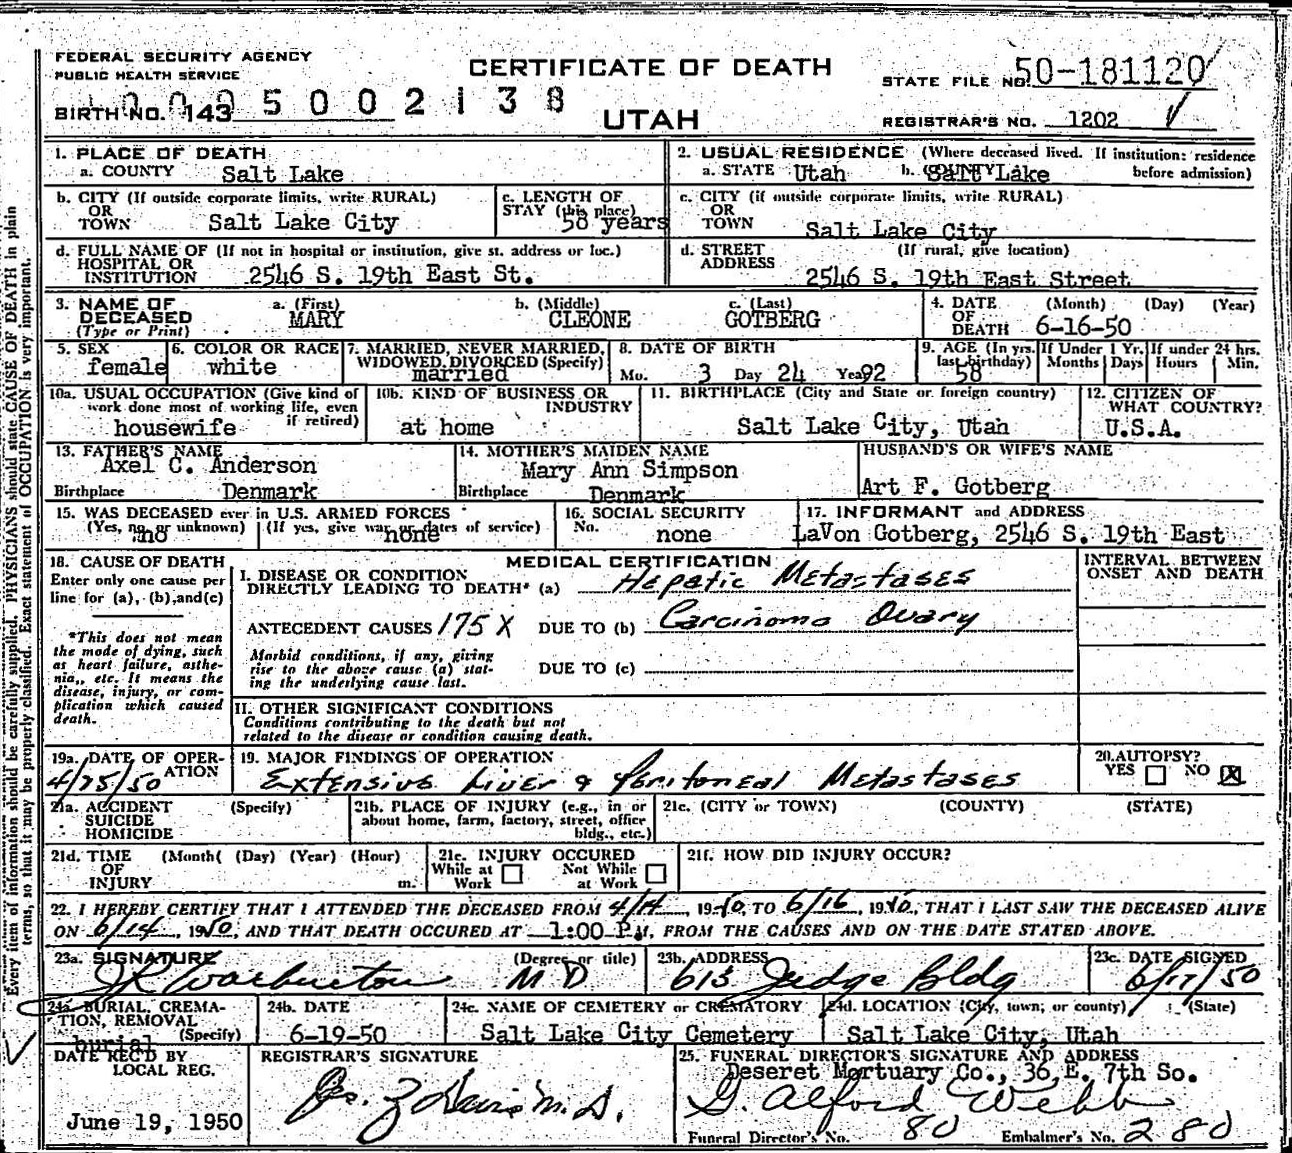 FEDERAL SECURITY AGENCY
PUBLIC HEALTH SERVICE
CERTIFICATE OF DEATH
STATE FILE NO. 50-181120
BIRTH NO. 143
5002138
UTAH
REGISTRAR'S NO. 1202
1. PLACE OF DEATH
a. COUNTY Salt Lake
2. USUAL RESIDENCE (Where deceased lived. If institution: residence before admission)
a. STATE Utah b. COUNTY Salt Lake
b. CITY (If outside corporate limits, write RURAL)
OR
TOWN Salt Lake City
c. LENGTH OF
STAY (this place)
58 years
c. CITY (if outside corporate limits, write RURAL)
OR
TOWN Salt Lake City
d. FULL NAME OF (If not in hospital or institution, give st. address or loc.)
HOSPITAL OR
INSTITUTION 2546 S. 19th East St.
d. STREET (If rural, give location)
ADDRESS 2546 S. 19th East Street
3. NAME OF
DECEASED
(Type or Print)
a. (First)
MARY
b. (Middle)
CLEONE
c. (Last)
GOTBERG
4. DATE (Month) (Day) (Year)
OF
DEATH 6-16-50
5. SEX
female
6. COLOR OR RACE
white
7. MARRIED, NEVER MARRIED,
WIDOWED, DIVORCED (Specify)
married
8. DATE OF BIRTH
Mo. 3 Day 24 Year 92
9. AGE (In yrs. last birthday)
58
If Under 1 Yr.
Months Days
If under 24 hrs.
Hours Min.
10a. USUAL OCCUPATION (Give kind of
work done most of working life, even
if retired)
housewife
10b. KIND OF BUSINESS OR
INDUSTRY
at home
11. BIRTHPLACE (City and State or foreign country)
Salt Lake City, Utah
12. CITIZEN OF
WHAT COUNTRY?
U.S.A.
13. FATHER'S NAME
Axel C. Anderson
Birthplace Denmark
14. MOTHER'S MAIDEN NAME
Mary Ann Simpson
Birthplace Denmark
HUSBAND'S OR WIFE'S NAME
Art F. Gotberg
15. WAS DECEASED ever in U.S. ARMED FORCES
(Yes, no, or unknown) (If yes, give war or dates of service)
no none
16. SOCIAL SECURITY
No. none
17. INFORMANT and ADDRESS
LaVon Gotberg, 2546 S. 19th East
18. CAUSE OF DEATH
Enter only one cause per
line for (a), (b), and (c)
*This does not mean
the mode of dying, such
as heart failure, asthe-
nia, etc. It means the
disease, injury, or com-
plication which caused
death.
MEDICAL CERTIFICATION
I. DISEASE OR CONDITION
DIRECTLY LEADING TO DEATH* (a) Hepatic Metastases
ANTECEDENT CAUSES 175X DUE TO (b) Carcinoma Ovary
Morbid conditions, if any, giving
rise to the above cause (a) stat-
ing the underlying cause last.
DUE TO (c)
II. OTHER SIGNIFICANT CONDITIONS
Conditions contributing to the death but not
related to the disease or condition causing death.
INTERVAL BETWEEN
ONSET AND DEATH
19a. DATE OF OPER-
ATION
4/25/50
19. MAJOR FINDINGS OF OPERATION
Extensive Liver & Peritoneal Metastases
20. AUTOPSY?
YES NO X
21a. ACCIDENT (Specify)
SUICIDE
HOMICIDE
21b. PLACE OF INJURY (e.g., in or
about home, farm, factory, street, office
bldg., etc.)
21c. (CITY or TOWN) (COUNTY) (STATE)
21d. TIME (Month( (Day) (Year) (Hour)
OF
INJURY m.
21e. INJURY OCCURED
While at Work
Not While at Work
21f. HOW DID INJURY OCCUR?
22. I HEREBY CERTIFY THAT I ATTENDED THE DECEASED FROM 4/14, 1950, TO 6/16, 1950, THAT I LAST SAW THE DECEASED ALIVE
ON 6/14, 1950, AND THAT DEATH OCCURED AT 1:00 P.M., FROM THE CAUSES AND ON THE DATE STATED ABOVE.
23a. SIGNATURE (Degree or title)
J R Warburton M D
23b. ADDRESS
613 Judge Bldg
23c. DATE SIGNED
6/17/50
24a. BURIAL, CREMA-
TION, REMOVAL
(Specify)
burial
24b. DATE
6-19-50
24c. NAME OF CEMETERY or CREMATORY
Salt Lake City Cemetery
24d. LOCATION (City, town, or county) (State)
Salt Lake City, Utah
DATE REC'D BY
LOCAL REG.
June 19, 1950
REGISTRAR'S SIGNATURE
M.D.
25. FUNERAL DIRECTOR'S SIGNATURE AND ADDRESS
Deseret Mortuary Co., 36 E. 7th So.
G. Alford Webb
Funeral Director's No. 80 Embalmer's No. 280
Every item of information should be carefully supplied. PHYSICIANS should state CAUSE OF DEATH in plain
terms, so that it may be properly classified. Exact statement of OCCUPATION is very important.